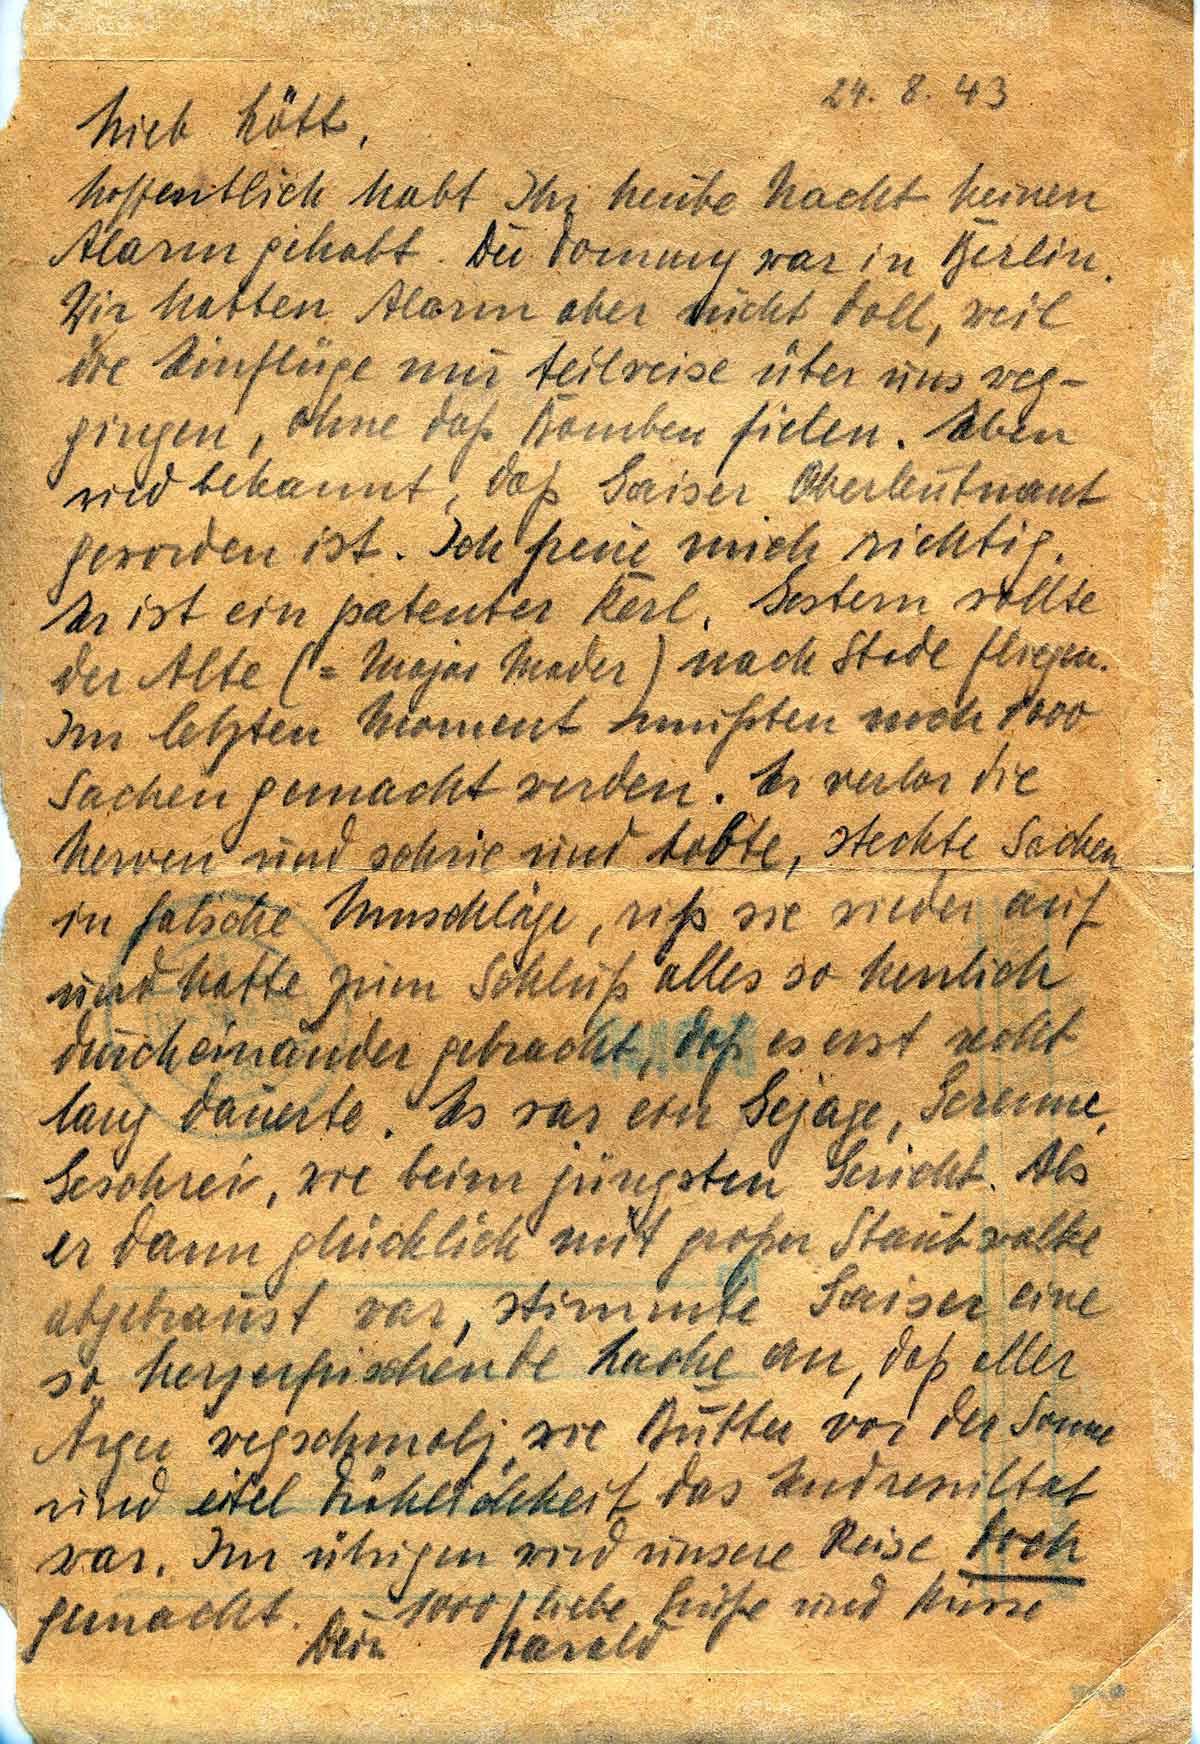 24. 8. 43
Lieb Lött,
hoffentlich habt Ihr heute Nacht keinen
Alarm gehabt. Die Tommy war in Berlin.
Wir hatten Alarm aber nicht doll, weil
die Einflüge nur teilweise über uns weg-
gingen, ohne daß Bomben fielen. Eben
wird bekannt, daß Gaiser Oberleutnant
geworden ist. Ich freue mich richtig.
Er ist ein patenter Kerl. Gestern wollte
der Alte (= Major Mader) nach Stade fliegen.
Im letzten Moment mußten noch 1000
Sachen gemacht werden. Er verlor die
Nerven und schrie und tobte, steckte Sachen
in falsche Umschläge, riß sie wieder auf
und hatte zum Schluß alles so herrlich
durcheinander gebracht, daß es erst recht
lang dauerte. Es war ein Gejage, Gerenne,
Geschrei, wie beim jüngsten Gericht. Als
er dann glücklich mit großer Staubwolke
abgebraust war, stimmte Gaiser eine
so herzerfrischende Lache an, daß aller
Ärger wegschmolz wie Butter vor der Sonne
und eitel Fröhlichkeit das Endresultat
war. Im übrigen wird unsere Reise doch
gemacht. 1000 liebe Grüße und Küsse
Dein Harald